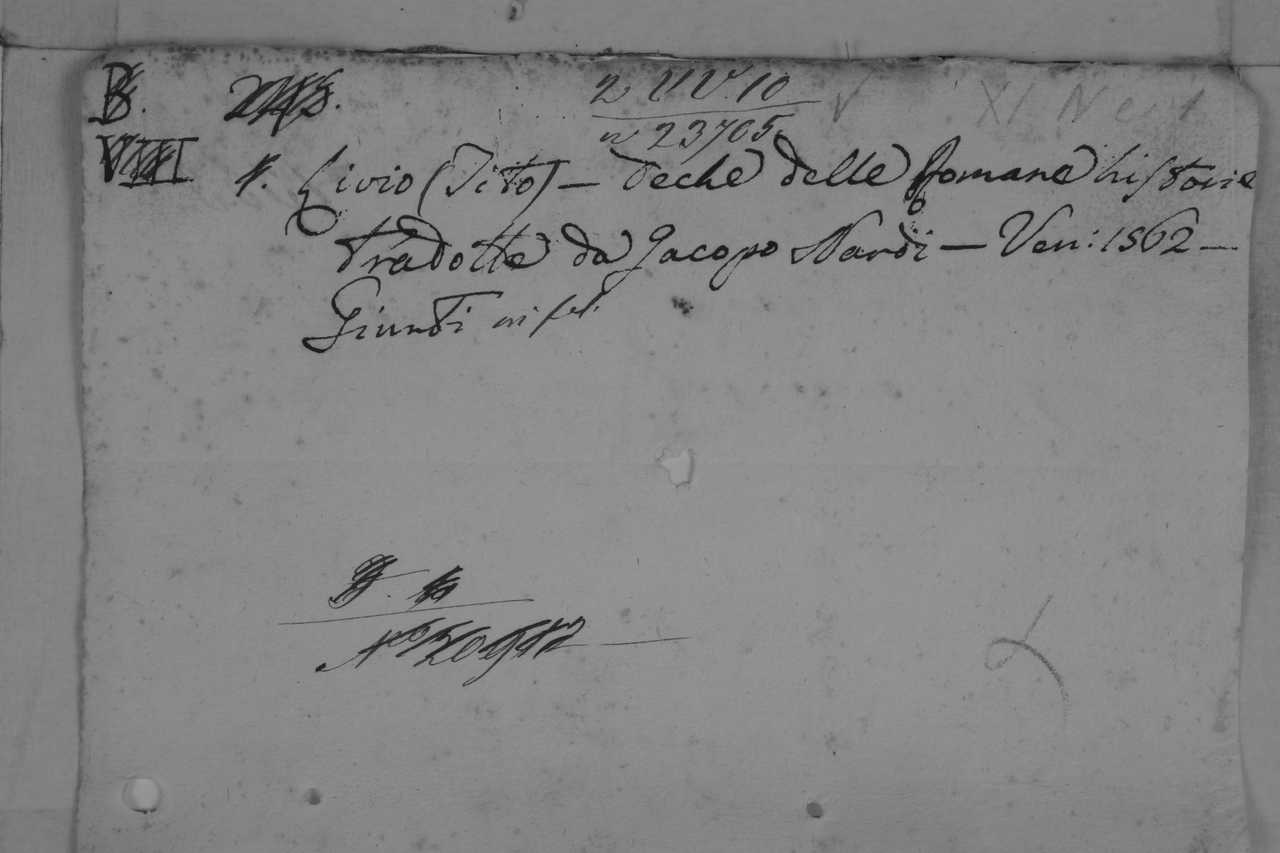 B.
2 VV.10
n 23705
VIII
1. Livio (Tito) — deche delle Romane historie
tradotte da Jacopo Nardi — Ven: 1562 —
Giunti in fol.